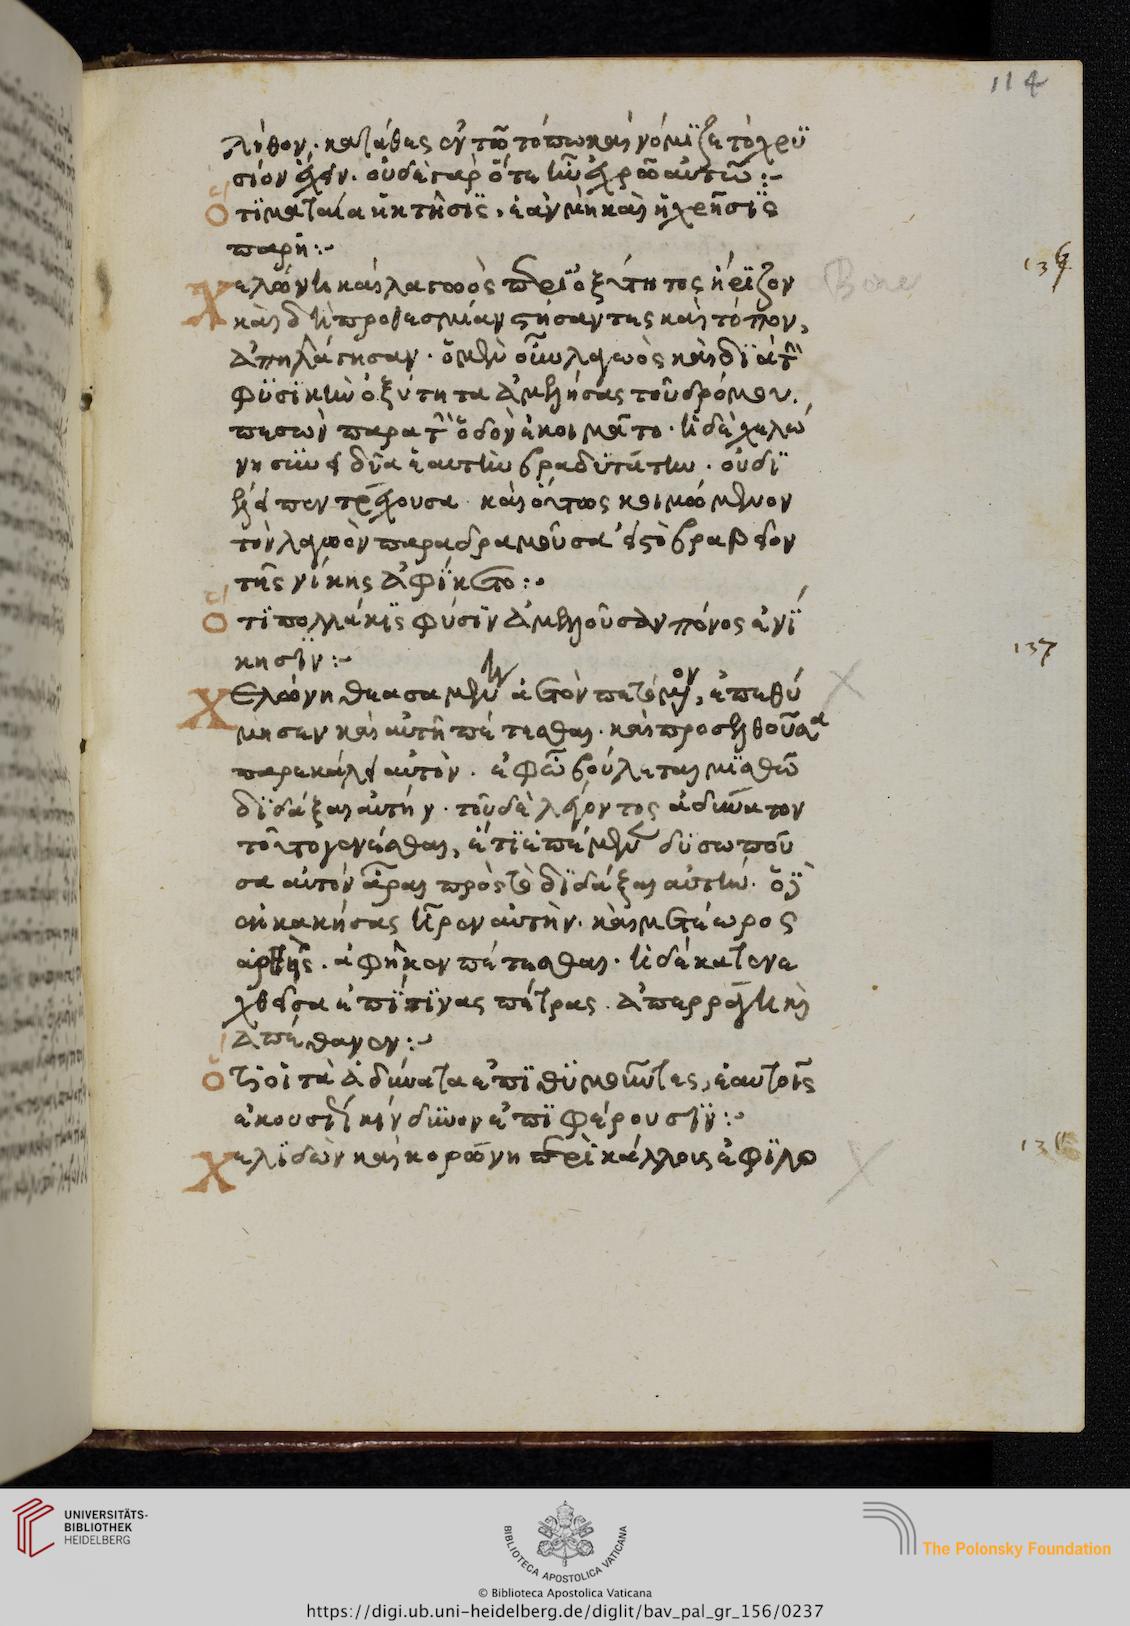 114
λίθον· κατάθες ἐν τῶ τόπω καὶ νόμιζε τὸ χρυ
σίον ἔχειν. οὐδὲ γὰρ ὅτε ἦν ἐχρῶ αὐτῶ:-
Ὅτι ματαία ἡ κτῆσις, ἐὰν μὴ καὶ ἡ χρῆσις
παρῆ:-
136
Χελώνη καὶ λαγωὸς περὶ ὀξύτητος ἤριζον
καὶ δὴ προθεσμίαν στήσαντες καὶ τόπον,
ἀπηλλάγησαν· ὁ μὲν οὖν λαγωὸς καὶ διὰ τὴν
φυσικὴν ὀξύτητα ἀμελήσας τοῦ δρόμου.
πεσὼν παρὰ τὴν ὁδὸν ἐκοιμᾶτο· ἡ δὲ χελώ
νη συνειδυῖα ἑαυτὴν βραδυτάτην. οὐ δι
έλειπεν τρέχουσα· καὶ οὕτως κοιμώμενον
τὸν λαγωὸν παραδραμοῦσα εἰς τὸ βραβεῖον
τῆς νίκης ἀφίκετο:-
Ὅτι πολλάκις φύσιν ἀμελοῦσαν πόνος ἐνί
κησεν:-
137
Χελώνη θεασαμένη ἀετὸν πετόμενον, ἐπεθύ
μησεν καὶ αὐτὴ πέτεσθαι· καὶ προσελθοῦσα
παρεκάλει αὐτὸν. ἐφ' ᾧ βούλεται μισθῶ
διδάξαι αὐτήν· τοῦ δὲ λέγοντος ἀδύνατον
τοῦτο γενέσθαι, ἔτι ἐπέμενε δυσωποῦ
σα αὐτόν ἆραι πρὸς τὸ διδάξαι αὐτήν. ὁ
ἐκκακήσας ἦρεν αὐτὴν. καὶ μετέωρος
ἀρθεὶς. ἀφῆκεν πέτεσθαι· ἡ δὲ κατενε
χθεῖσα ἐπί τινας πέτρας. ἀπερράγη καὶ
ἀπέθανεν:-
Ὅτι οἱ τὰ ἀδύνατα ἐπιθυμοῦντες, ἑαυτοῖς
ἑκουσίως κίνδυνον ἐπιφέρουσιν:-
Χελιδὼν καὶ κορώνη περὶ κάλλους ἐφιλο
UNIVERSITÄTS-
BIBLIOTHEK
HEIDELBERG
BIBLIOTECA APOSTOLICA VATICANA
The Polonsky Foundation
© Biblioteca Apostolica Vaticana
https://digi.ub.uni-heidelberg.de/diglit/bav_pal_gr_156/0237